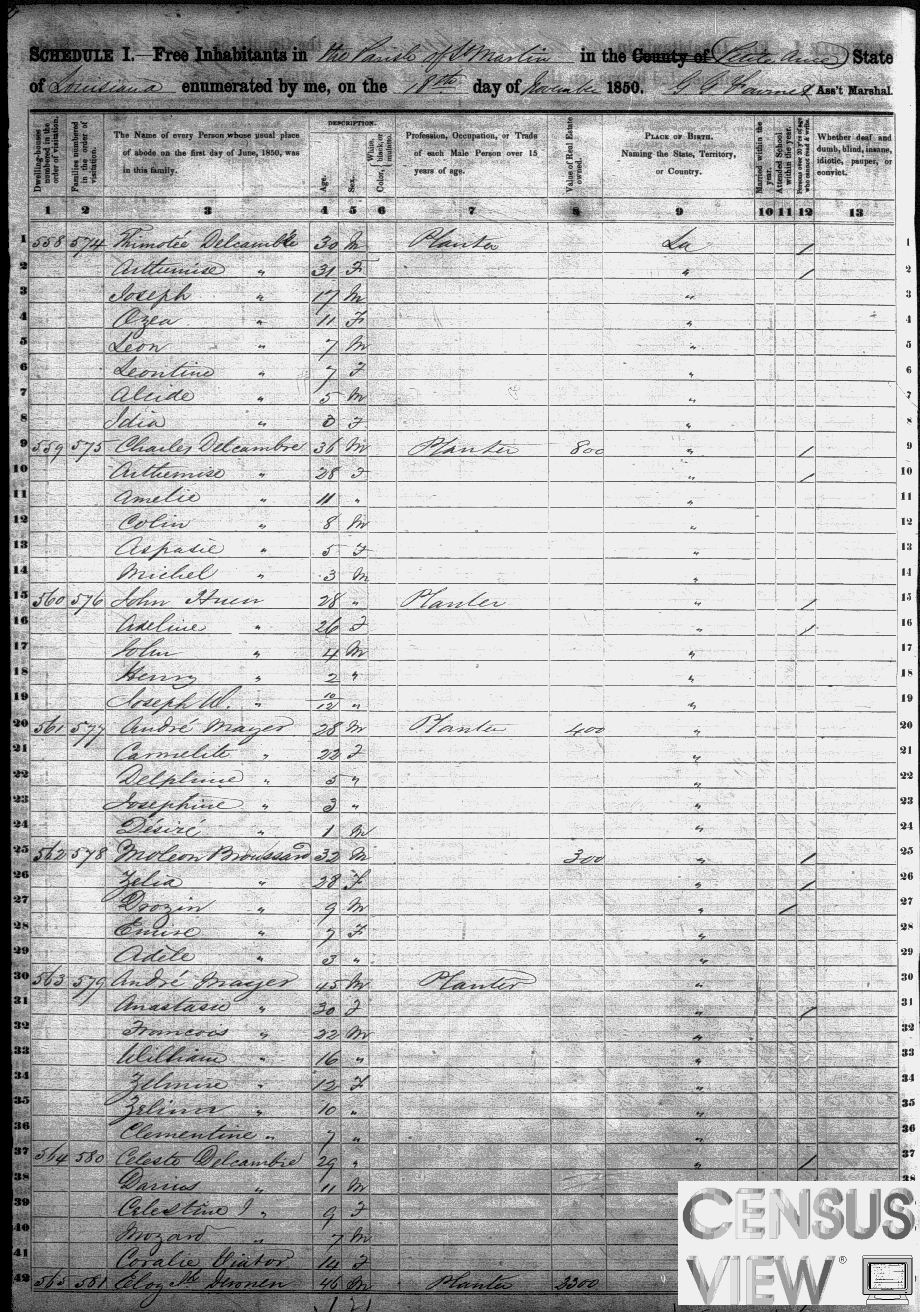 SCHEDULE I.—Free Inhabitants in the Parish of St Martin in the County of Petite Anse State
of Louisiana enumerated by me, on the 18th day of November 1850. Ass't Marshal.
Dwelling-houses numbered in the order of visitation.
Families numbered in the order of visitation.
The Name of every Person whose usual place of abode on the first day of June, 1850, was in this family.
DESCRIPTION.
Age.
Sex.
Color, White, black, or mulatto.
Profession, Occupation, or Trade of each Male Person over 15 years of age.
Value of Real Estate owned.
PLACE OF BIRTH. Naming the State, Territory, or Country.
Married within the year.
Attended School within the year.
Persons over 20 y'rs of age who cannot read & write.
Whether deaf and dumb, blind, insane, idiotic, pauper, or convict.
1 2 3 4 5 6 7 8 9 10 11 12 13
1 558 574 Thimotée Delcambre 30 M Planter La / 1
2 Arthemise " 31 F " / 2
3 Joseph " 17 M " 3
4 Ozea " 11 F " 4
5 Leon " 7 M " 5
6 Leontine " 7 F " 6
7 Alcide " 5 M " 7
8 Idia " 0 F " 8
9 559 575 Charles Delcambre 36 M Planter 800 " / 9
10 Arthemise " 28 F " / 10
11 Amelie " 11 " " 11
12 Colin " 8 M " 12
13 Aspasie " 5 F " 13
14 Michel " 3 M " 14
15 560 576 John Huen 28 " Planter " / 15
16 Adeline " 26 F " / 16
17 John " 4 M " 17
18 Henry " 2 " " 18
19 Joseph W. " 10/12 " " 19
20 561 577 André Mayer 28 M Planter 400 " 20
21 Carmelite " 22 F " 21
22 Delphine " 5 " " 22
23 Josephine " 3 " " 23
24 Désiré " 1 M " 24
25 562 578 Moleon Broussard 32 M 300 " / 25
26 Zelia " 28 F " / 26
27 Drozin " 9 M " / 27
28 Emire " 7 F " 28
29 Adèle " 3 " " 29
30 563 579 André Mayer 45 M Planter " 30
31 Anastasie " 30 F " / 31
32 Francois " 22 M " 32
33 William " 16 " " 33
34 Zelmire " 12 F " 34
35 10 " " 35
36 Clementine " 7 " " 36
37 564 580 Celeste Delcambre 29 " " / 37
38 Darius " 11 M 38
39 Celestine J " 9 F
40 Mozard " 7 M
41 Coralie Viator 14 F
42 565 581 Eloy 46 M Planter 2300
CENSUS
VIEW®